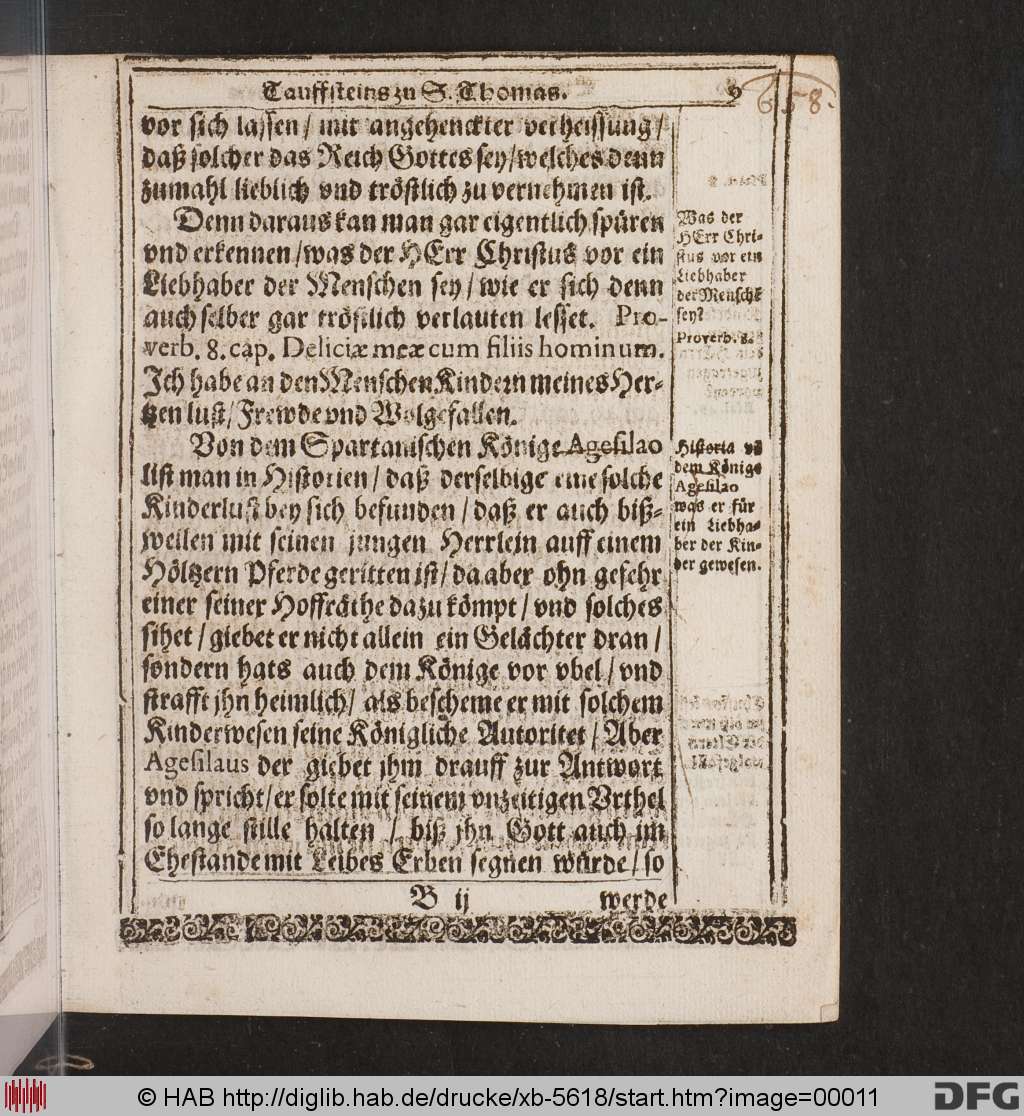 Tauffsteins zu S. Thomas. 9
658.
vor sich lassen / mit angehenckter verheissung /
daß solcher das Reich Gottes sey / welches denn
zumahl lieblich vnd tröstlich zu vernehmen ist.
Denn daraus kan man gar eigentlich spüren
vnd erkennen / was der HErr Christus vor ein
Liebhaber der Menschen sey / wie er sich denn
auch selber gar tröstlich verlauten lesset. Pro-
verb. 8. cap. Deliciæ meæ cum filiis hominum.
Ich habe an den Menschen Kindern meines Her-
tzen lust / Frewde vnd Wolgefallen.
Von dem Spartanischen Könige Agesilao
list man in Historien / daß derselbige eine solche
Kinderlust bey sich befunden / daß er auch biß-
weilen mit seinen jungen Herrlein auff einem
Höltzern Pferde geritten ist / da aber ohn gefehr
einer seiner Hoffräthe dazu kömpt / vnd solches
sihet / giebet er nicht allein ein Gelächter dran /
sondern hats auch dem Könige vor vbel / vnd
strafft jhn heimlich / als bescheme er mit solchem
Kinderwesen seine Königliche Autoritet / Aber
Agesilaus der giebet jhm drauff zur Antwort
vnd spricht / er solte mit seinem vnzeitigen Vrthel
so lange stille halten / biß jhn Gott auch im
Ehestande mit Leibes Erben segnen würde / so
B ij werde
Was der
HErr Chri-
stus vor ein
Liebhaber
der Mensch&#x0303;e
sey?
Proverb. 8.
Historia võ
dem Könige
Agesilao
was er für
ein Liebha-
ber der Kin-
der gewesen.
© HAB http://diglib.hab.de/drucke/xb-5618/start.htm?image=00011
DFG